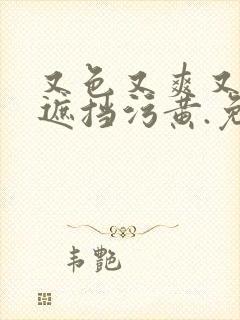 又色又爽又
遮挡污黄.免
韦艷